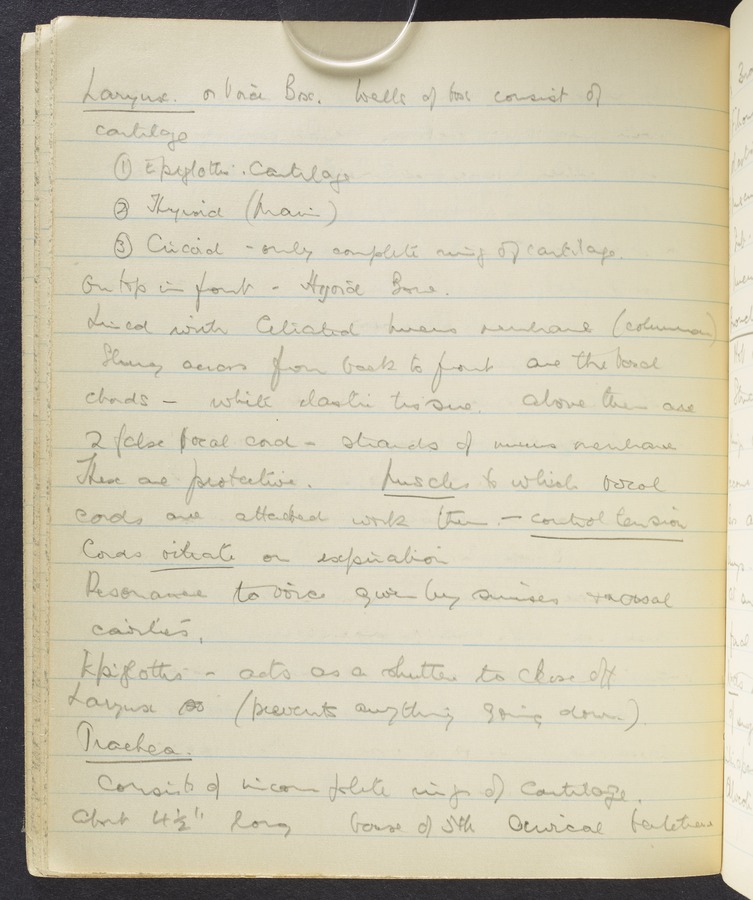 Larynx. or Voice Box. Walls of box consist of
cartilage
① Epiglottis. Cartilage
② Thyroid (main)
③ Cricoid - only complete ring of cartilage.
On top in front - Hyoid Bone.
Lined with Ciliated mucus membrane (columnar)
Slung across from back to front are the vocal
chords - white elastic tissue. above them are
2 false vocal cords - strands of mucus membrane
These are protective. Muscles to which vocal
cords are attached work them. - control tension
Cords vibrate on expiration
Resonance to voice given by sinuses & nasal
cavities,
Epiglottis - acts as a shutter to close off
Larynx (prevents anything going down)
Trachea.
Consists of incomplete rings of Cartilage.
About 4½" long 5th